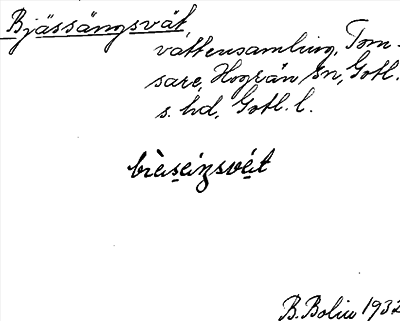 Bjässängsvät,
vattensamling, Tom-
sare, Hogrän sn, Gotl.
s. hd, Gotl. l.
bi̯èiseiŋsvét
B. Bolin 1932